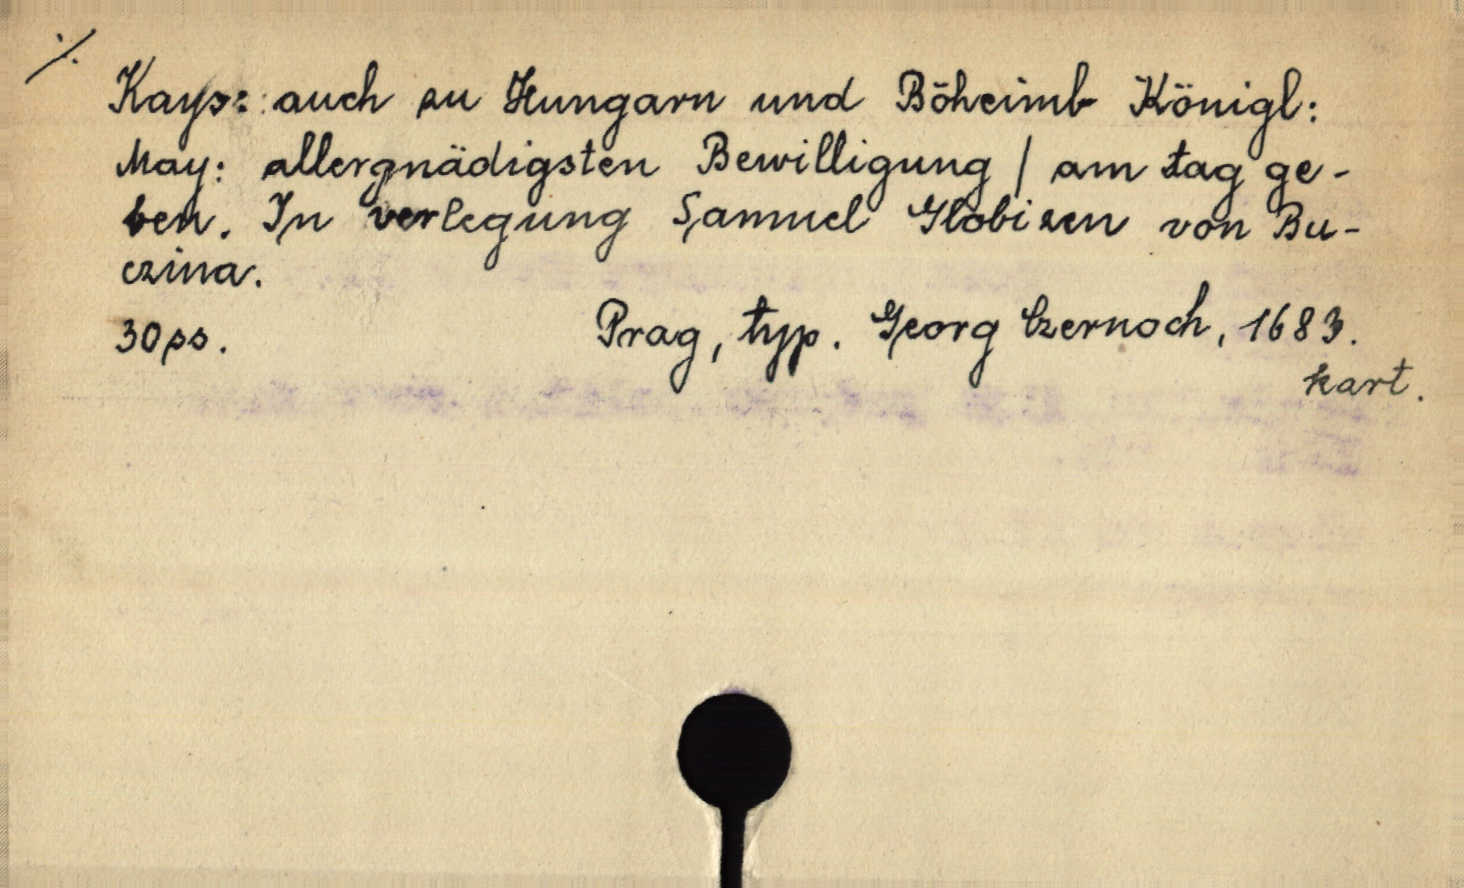 ./.
Kays: auch zu Hungarn und Böheimb Königl:
May: allergnädigsten Bewilligung / am tag ge-
ben. In verlegung Samuel Globizen von Bu-
czina.
30 ss. Prag, typ. Georg Czernoch, 1683.
kart.